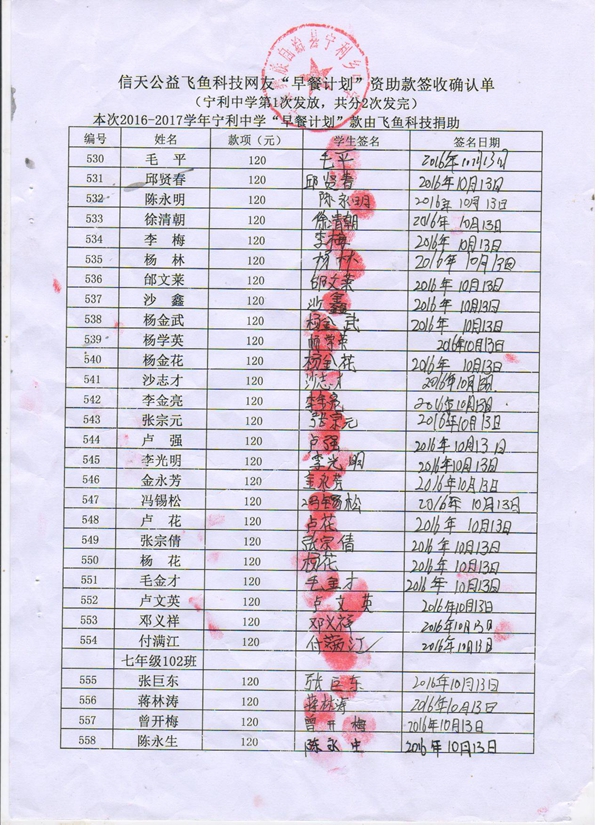 信天公益飞鱼科技网友“早餐计划”资助款签收确认单
（宁利中学第1次发放，共分2次发完）
本次2016-2017学年宁利中学“早餐计划”款由飞鱼科技捐助
编号 姓名 款项（元） 学生签名 签名日期
530 毛 平 120 毛平 2016年10月13日
531 邱贤春 120 邱贤春 2016年10月13日
532 陈永明 120 陈永明 2016年10月13日
533 徐清朝 120 徐清朝 2016年10月13日
534 李 梅 120 李梅 2016年10月13日
535 杨 林 120 杨林 2016年10月13日
536 邰文莱 120 邰文莱 2016年10月13日
537 沙 鑫 120 沙鑫 2016年10月13日
538 杨金武 120 杨金武 2016年10月13日
539 杨学英 120 2016年10月13日
540 杨金花 120 杨金花 2016年10月13日
541 沙志才 120 沙志才 2016年10月13日
542 李金亮 120 李金亮 2016年10月13日
543 张宗元 120 张宗元 2016年10月13日
544 卢 强 120 卢强 2016年10月13日
545 李光明 120 李光明 2016年10月13日
546 金永芳 120 金永芳 2016年10月13日
547 冯锡松 120 冯锡松 2016年10月13日
548 卢 花 120 卢花 2016年10月13日
549 张宗倩 120 张宗倩 2016年10月13日
550 杨 花 120 杨花 2016年10月13日
551 毛金才 120 毛金才 2016年10月13日
552 卢文英 120 卢文英 2016年10月13日
553 邓义祥 120 邓义祥 2016年10月13日
554 付满江 120 付满江 2016年10月13日
七年级102班
555 张巨东 120 张巨东 2016年10月13日
556 蒋林涛 120 蒋林涛 2016年10月13日
557 曾开梅 120 曾开梅 2016年10月13日
558 陈永生 120 陈永生 2016年10月13日